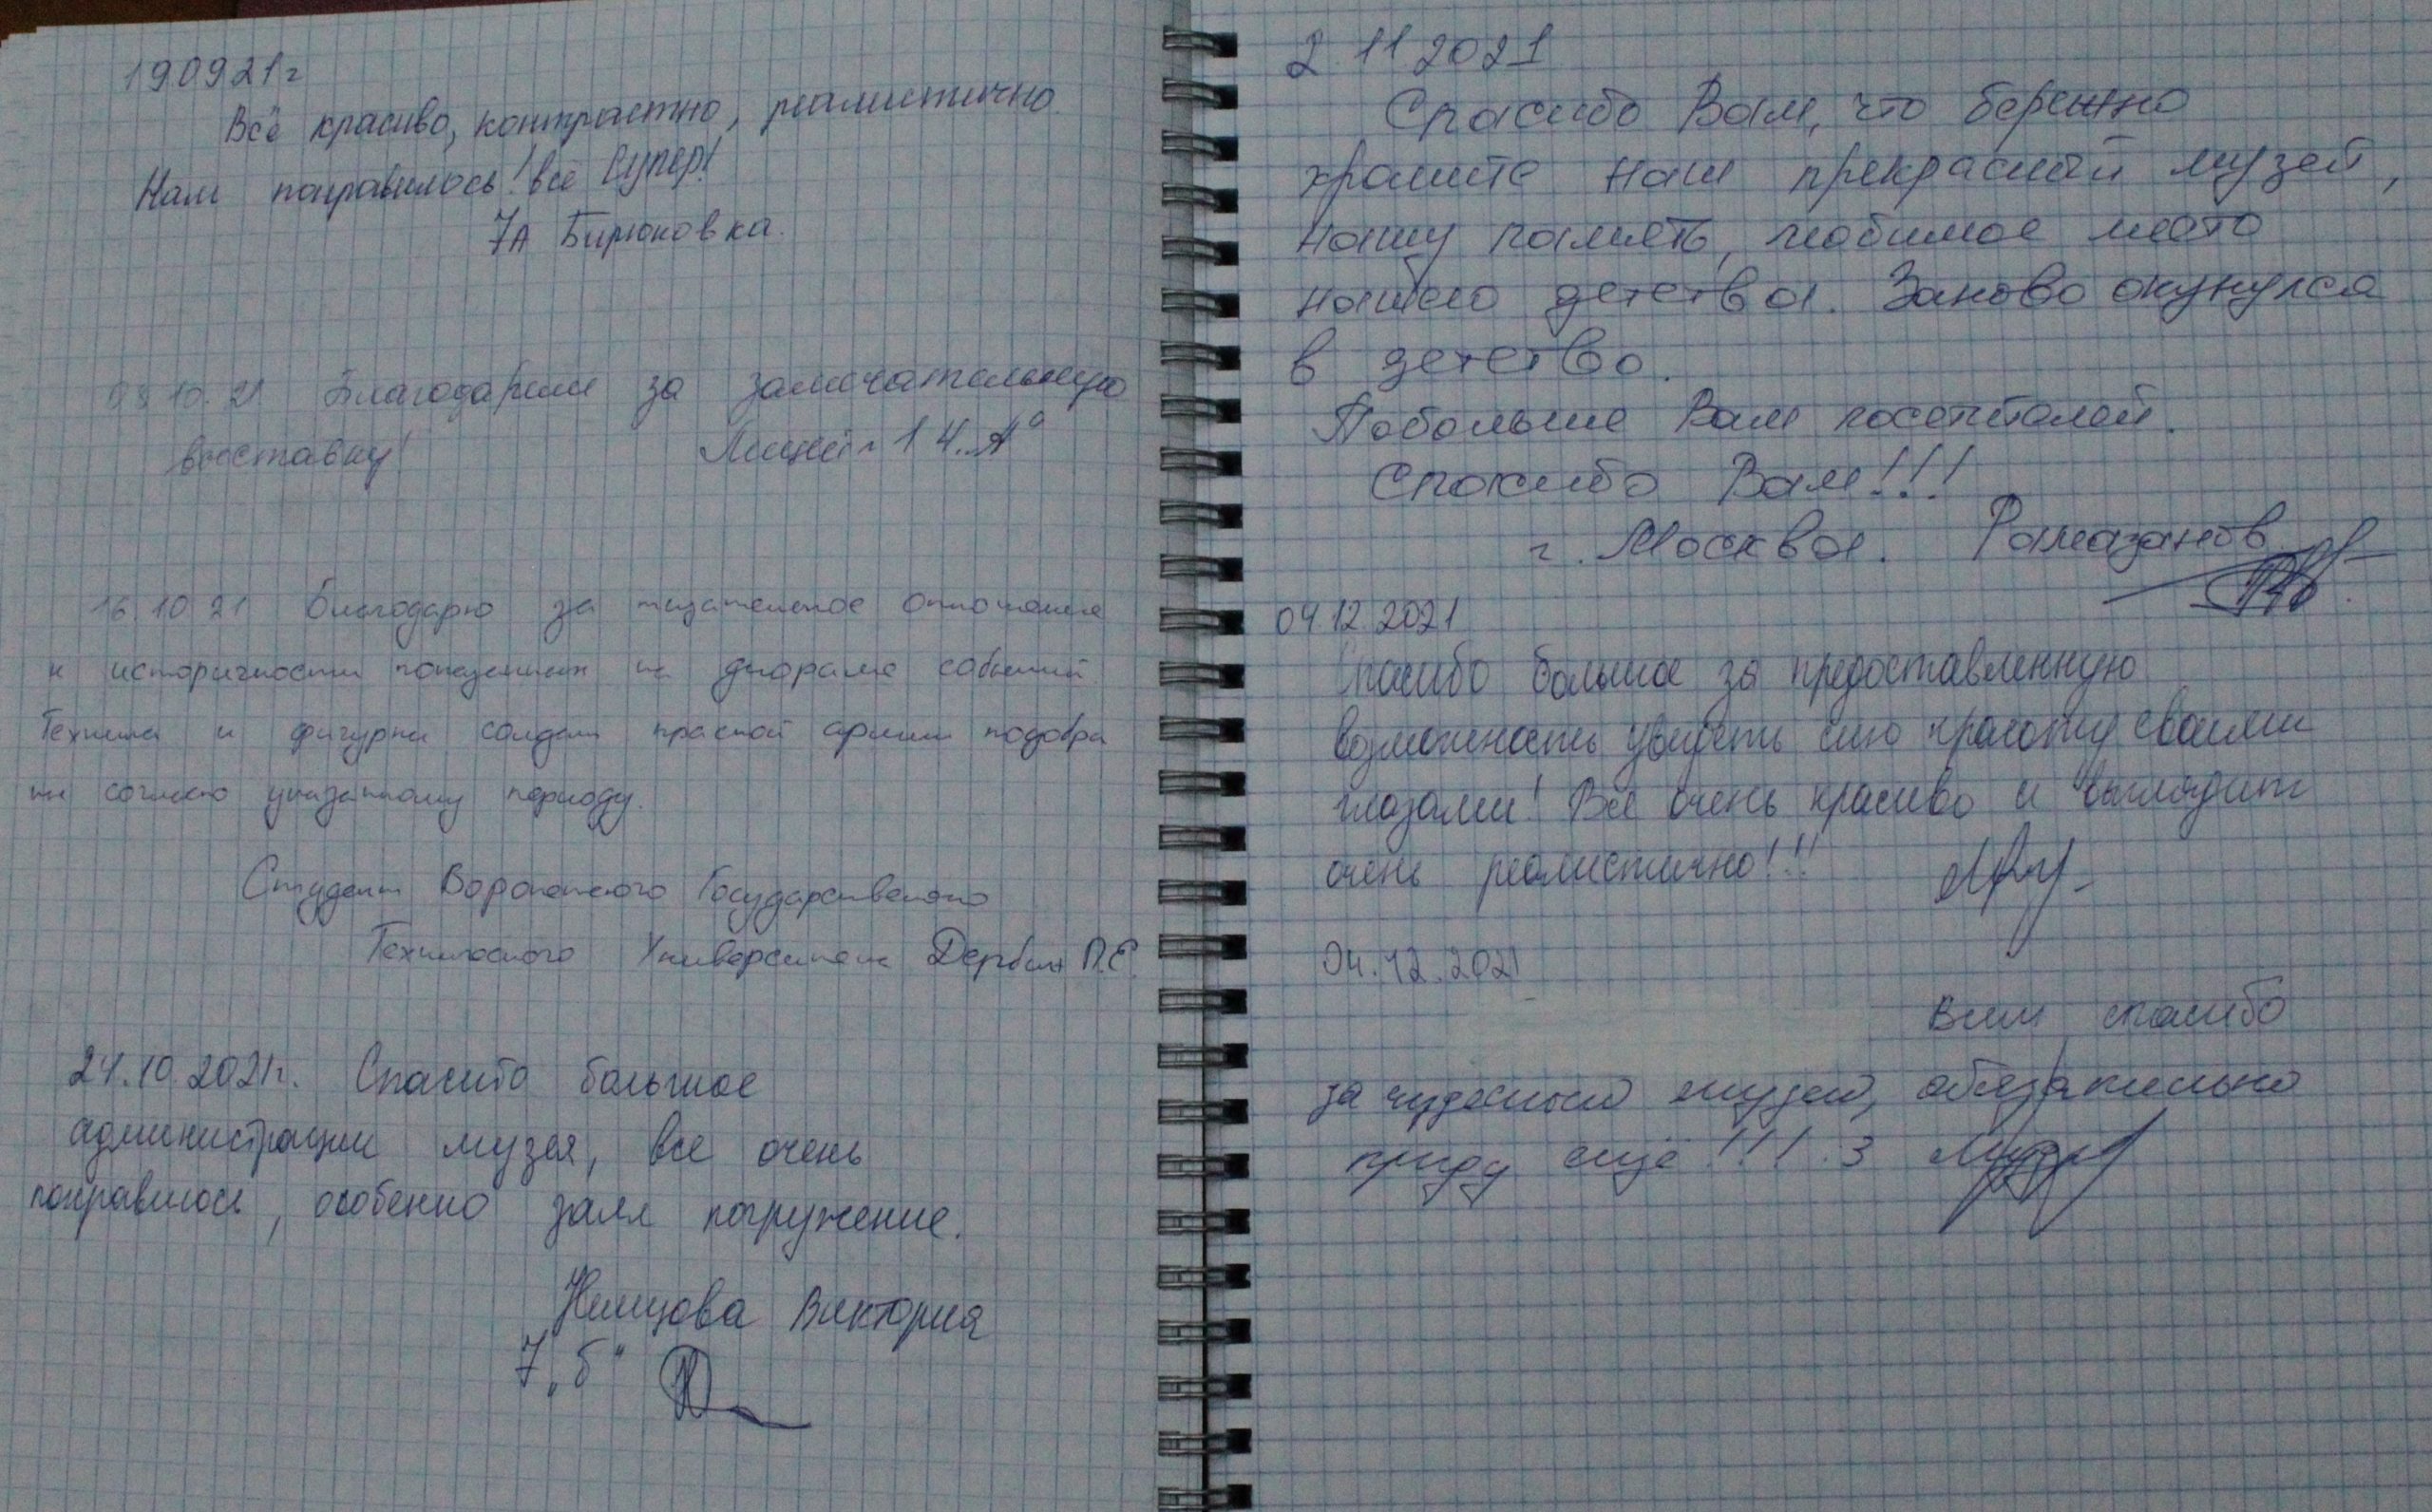 19.09.21г
Всё красиво, контрастно, реалистично.
Нам понравилось! всё Супер!
7А Бирюковка.
10.21 Благодарим за замечательную
выставку! Лицей 1 4 "А"
16.10.21 Благодарю за тщательное отношение
к историчности показанных на диораме событий.
Техника и фигурки солдат красной армии подобра
ны согласно указанному периоду.
Студент Воронежского Государственного
Технического Университета Дербин П.Е.
24.10.2021г. Спасибо большое
администрации музея, все очень
понравилось, особенно залл погружение.
Немцова Виктория
7 „Б“
2.11 2021
Спасибо Вам, что бережно
храните наш прекрасный музей,
нашу память, любимое место
нашего детства. Заново окунулся
в детство.
Побольше Вам посетителей.
Спасибо Вам!!!
г. Москва. Рамазанов
04.12.2021
Спасибо большое за предоставленную
возможность увидеть сию красоту своими
глазами! Всё очень красиво и выглядит
очень реалистично!!!
04.12.2021
Вам спасибо
за чудесный музей, обязательно
приду ещё!!!